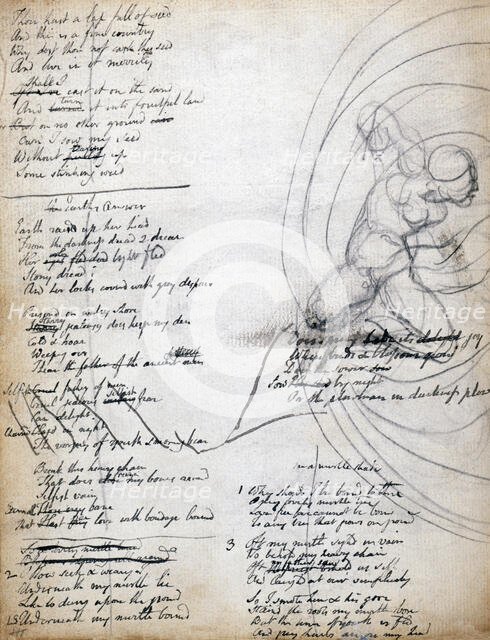 Thou hast a lap full of seed
And this is a fine country
Why dost thou not cast thy seed
And live in it merrily
Shall I
cast it on the sand
And turn it into fruitful land
on no other ground
Can I sow my seed
Without up
Some stinking weed
The Earths Answer
Earth raisd up her head
From the darkness dread & drear
Her light fled
Stony dread!
And her locks coverd with grey despair
Prisond on watry shore
Starry jealousy does keep my den
Cold & hoar
Weeping oer
I hear the father of the ancient men
Selfish father of men
Cruel jealous selfish fear
Can delight
Chaind in night
The virgins of youth & morning bear
Break this heavy chain
That does freeze my bones around
Selfish vain
Eternal bane
That hast love with bondage bound
Does spring hide its delight joy
When buds & blossoms grow
Does the sower sow
Sow by night
Or the plowman in darkness plow
in a mirtle shade
1 Why should I be bound to thee
O my lovely mirtle tree
Love free love cannot be bound
To any tree that grows on ground
2
Underneath my mirtle tree
Like to dung upon the ground
Underneath my mirtle bound
3 Oft my mirtle sighd in vain
To behold my heavy chain
Oft my father saw us sigh
And laughd at our simplicity
So I smote him & his gore
Staind the roots my mirtle bore
But the time of youth is fled
And grey hairs are on my head
Heritage
Heritage
Heritage
Heritage